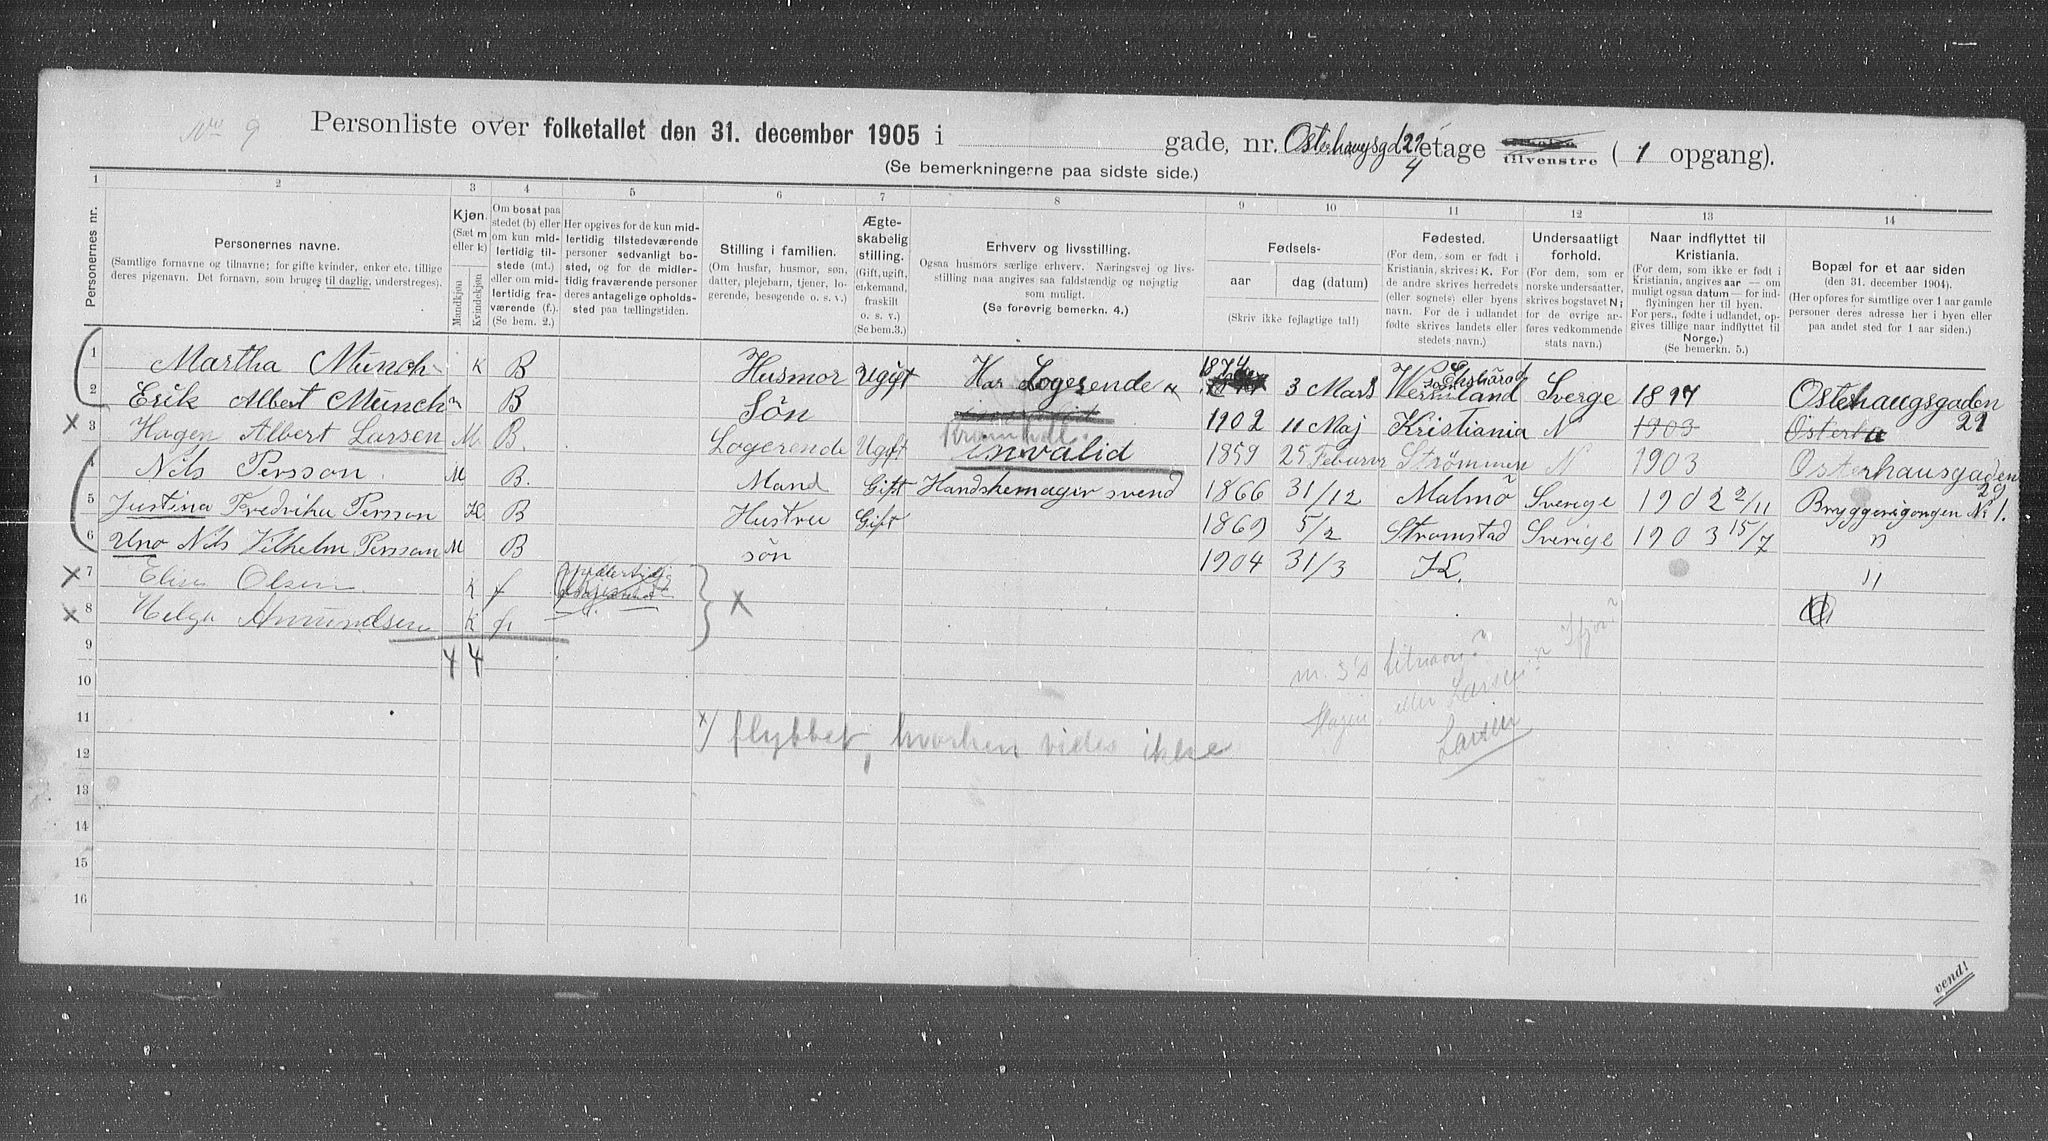 No 9 Personliste over folketallet den 31. december 1905 i gade, nr. Osterhaugsgd 29 4 etage tilvenstre ( 1 opgang).
(Se bemerkningerne paa sidste side.)
1 2 3 4 5 6 7 8 9 10 11 12 13 14
Personernes nr.
Personernes navne.
(Samtlige fornavne og tilnavne; for gifte kvinder, enker etc. tillige
deres pigenavn. Det fornavn, som bruges til daglig, understreges).
Kjøn.
(Sæt m
eller k)
Mandkjøn
Kvindekjøn
Om bosat paa
stedet (b) eller
om kun mid-
lertidig til-
stede (mt.)
eller om mid-
lertidig fra-
værende (f.).
(Se bem. 2.)
Her opgives for de kun mid-
lertidig tilstedeværende
personer sedvanlig bo-
sted, og for de midler-
tidig fraværende personer
deres antagelige opholds-
sted paa tællingstiden.
Stilling i familien.
(Om husfar, husmor, søn,
datter, plejebarn, tjener, lo-
gerende, besøgende o. s. v.)
Ægte-
skabelig
stilling.
(Gift, ugift,
enkemand,
fraskilt
o. s. v.)
(Se bem.3.)
Erhverv og livsstilling.
Ogsaa husmors særlige erhverv. Næringsvej og livs-
stilling maa angives saa fuldstændig og nøjagtig
som muligt.
(Se forøvrig bemerkn. 4.)
Fødsels-
aar dag (datum)
(Skriv ikke fejlagtige tal!)
Fødested.
(For dem, som er født i
Kristiania, skrives: K. For
de andre skrives herredets
(eller sognets) eller byens
navn. For de i udlandet
fødte skrives landets eller
stedets navn.)
Undersaatligt
forhold.
(For dem, som er
norske undersaatter,
skrives bogstavet N;
for de øvrige an-
føres vedkommende
stats navn.)
Naar indflyttet til
Kristiania.
(For dem, som ikke er født i
Kristiania, angives aar — om
muligt ogsaa datum — for ind-
flytningen her til byen.
For pers., fødte i udlandet, op-
gives tillige naar indflyttet til
Norge.)
(Se bemerkn. 5.)
Bopæl for et aar siden
(den 31. december 1904).
(Her opføres for samtlige over 1 aar gamle
personer deres adresse her i byen eller
paa andet sted for 1 aar siden.)
1 Martha Münch K B Husmor Ugift Har Logerende 1874 3 Mars Wermland Sverge 1897 Osterhaugsgaden 29
2 Erik Albert Münch m B Sön 1902 11 Maj Kristiania N 1903 Osterha
x 3 Hagen Albert Larsen M. B. Logerende Ugift invalid 1859 25 Strömmen N 1903 Osterhausgaden 29
4 Nils Persson. M B. Mand Gift Handskemager svend 1866 31/12 Malmö Sverige 1902 2/11 Bryggerigangen No 1.
5 Justina Fredrika Persson K. B Hustru Gift 1869 5/2 Stromstad Sverige 1903 15/7 "
6 Uno Nils Vilhelm Persson M B sön 1904 31/3 K. "
x 7 Elise Olsen K f x
x 8 Helga Amundsen K f
9 4 4
10 nr. 3's tilnavn?
11 Hagen eller Larsen?
x) flyttet, hvorhen vides ikke Larsen
12
13
14
15
16
vend!